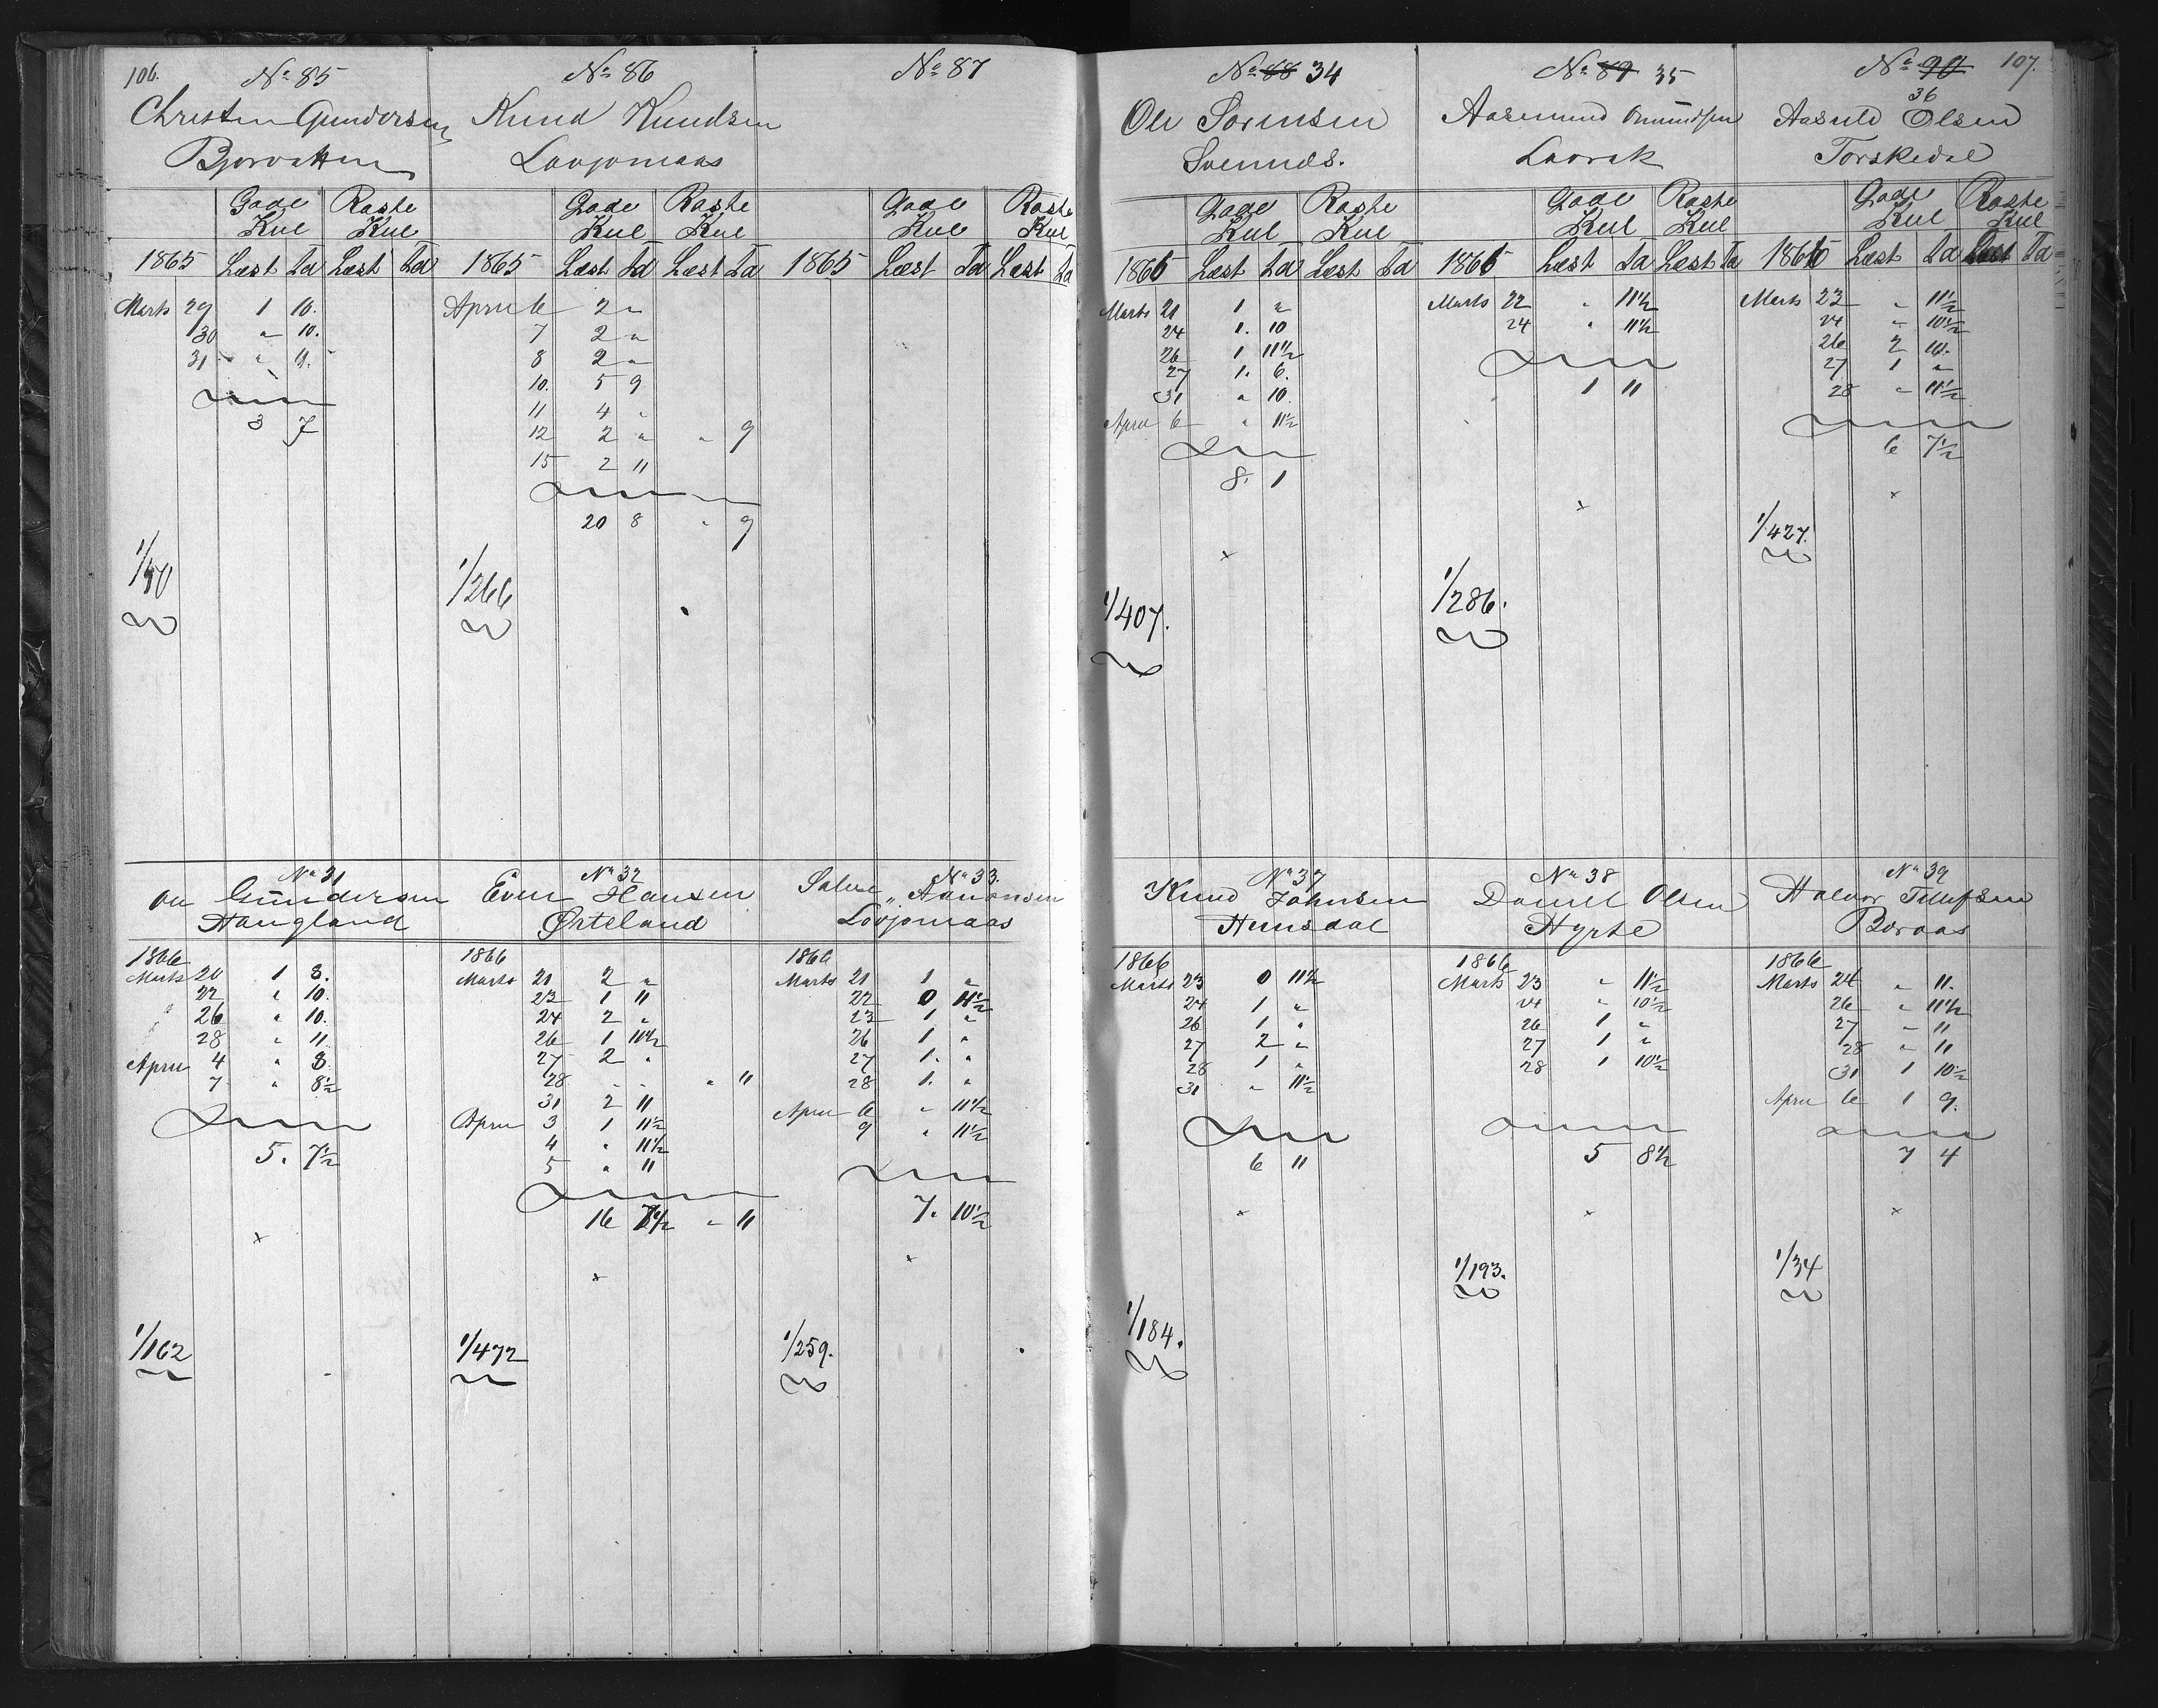 106.
No 85
Christen Gundersen
Gade Kul Raste Kul
1865 Læst Td Læst Td
Marts 29 1 10.
30 " 10.
31 " 11.
3 7
No 86
Knud Knudsen
Lovjomaas
Gade Kul Raste Kul
1865 Læst Td Læst Td
April 6 2 "
7 2 "
8 2 "
10. 5 9
11 4 "
12 2 " " 9
15 2 11
20 8 " 9
1/266
No 87
Gade Kul Raste Kul
1865 Læst Td Læst Td
No 88 34
Ole Sorensen
Gade Kul Raste Kul
1866 Læst Td Læst Td
Marts 21 1 "
24 1. 10
26 1 11½
27 1. 6.
31 " 10.
April 6 " 11½
8. 1
x
1/407.
No 89 35
Aasmund Omundsen
Lavrak
Gade Kul Raste Kul
1866 Læst Td Læst Td
Marts 22 " 11½
24 " 11½
1 11
x
1/286.
No 90 107
36
Aasuld Olsen
Torskedal
Gade Kul Raste Kul
1866 Læst Td Læst Td
Marts 23 " 11½
24 " 10½
26 2 10.
27 1 "
28 " 11½
6 7½
x
1/427.
No 31
Ole Gundersen
Haugland
1866
Marts 20 1 8.
22 " 10.
" 26 " 10.
" 28 " 11
April 4 " 8.
7 " 8½
5. 7½
x
1/162
No 32
Even Hansen
Ørteland
1866
Marts 21 2 "
23 1 11
24 2 "
26 1 10½
27 2 "
28 " " " 11
31 2 11
April 3 1 11½
4 " 11½
5 " 11
16 7½ " 11
x
1/472
No 33.
Salve Aanonsen
Lovjomaas
1866
Marts 21 1 "
22 0 11½
23 1 "
26 1 "
27 1. "
28 1. "
April 6 " 11½
9 " 11½
7. 10½
x
1/259.
No 37
Knud Johnsen
Hunsdal
1866
Marts 23 0 11½
24 1 "
26 1 "
27 2 "
28 1 "
31 " 11½
6 11
x
1/184.
No 38
Daniel Olsen
Hyrte
1866
Marts 23 " 11½
24 " 10½
26 1 "
27 1 "
28 1 10½
5 8½
x
1/193.
No 39
Halvor Tellefsen
Boraas
1866
Marts 24 " 11.
26 " 11½
27 " 11
28 " 11
31 1 10½
April 6 1 9.
7 4
x
1/34